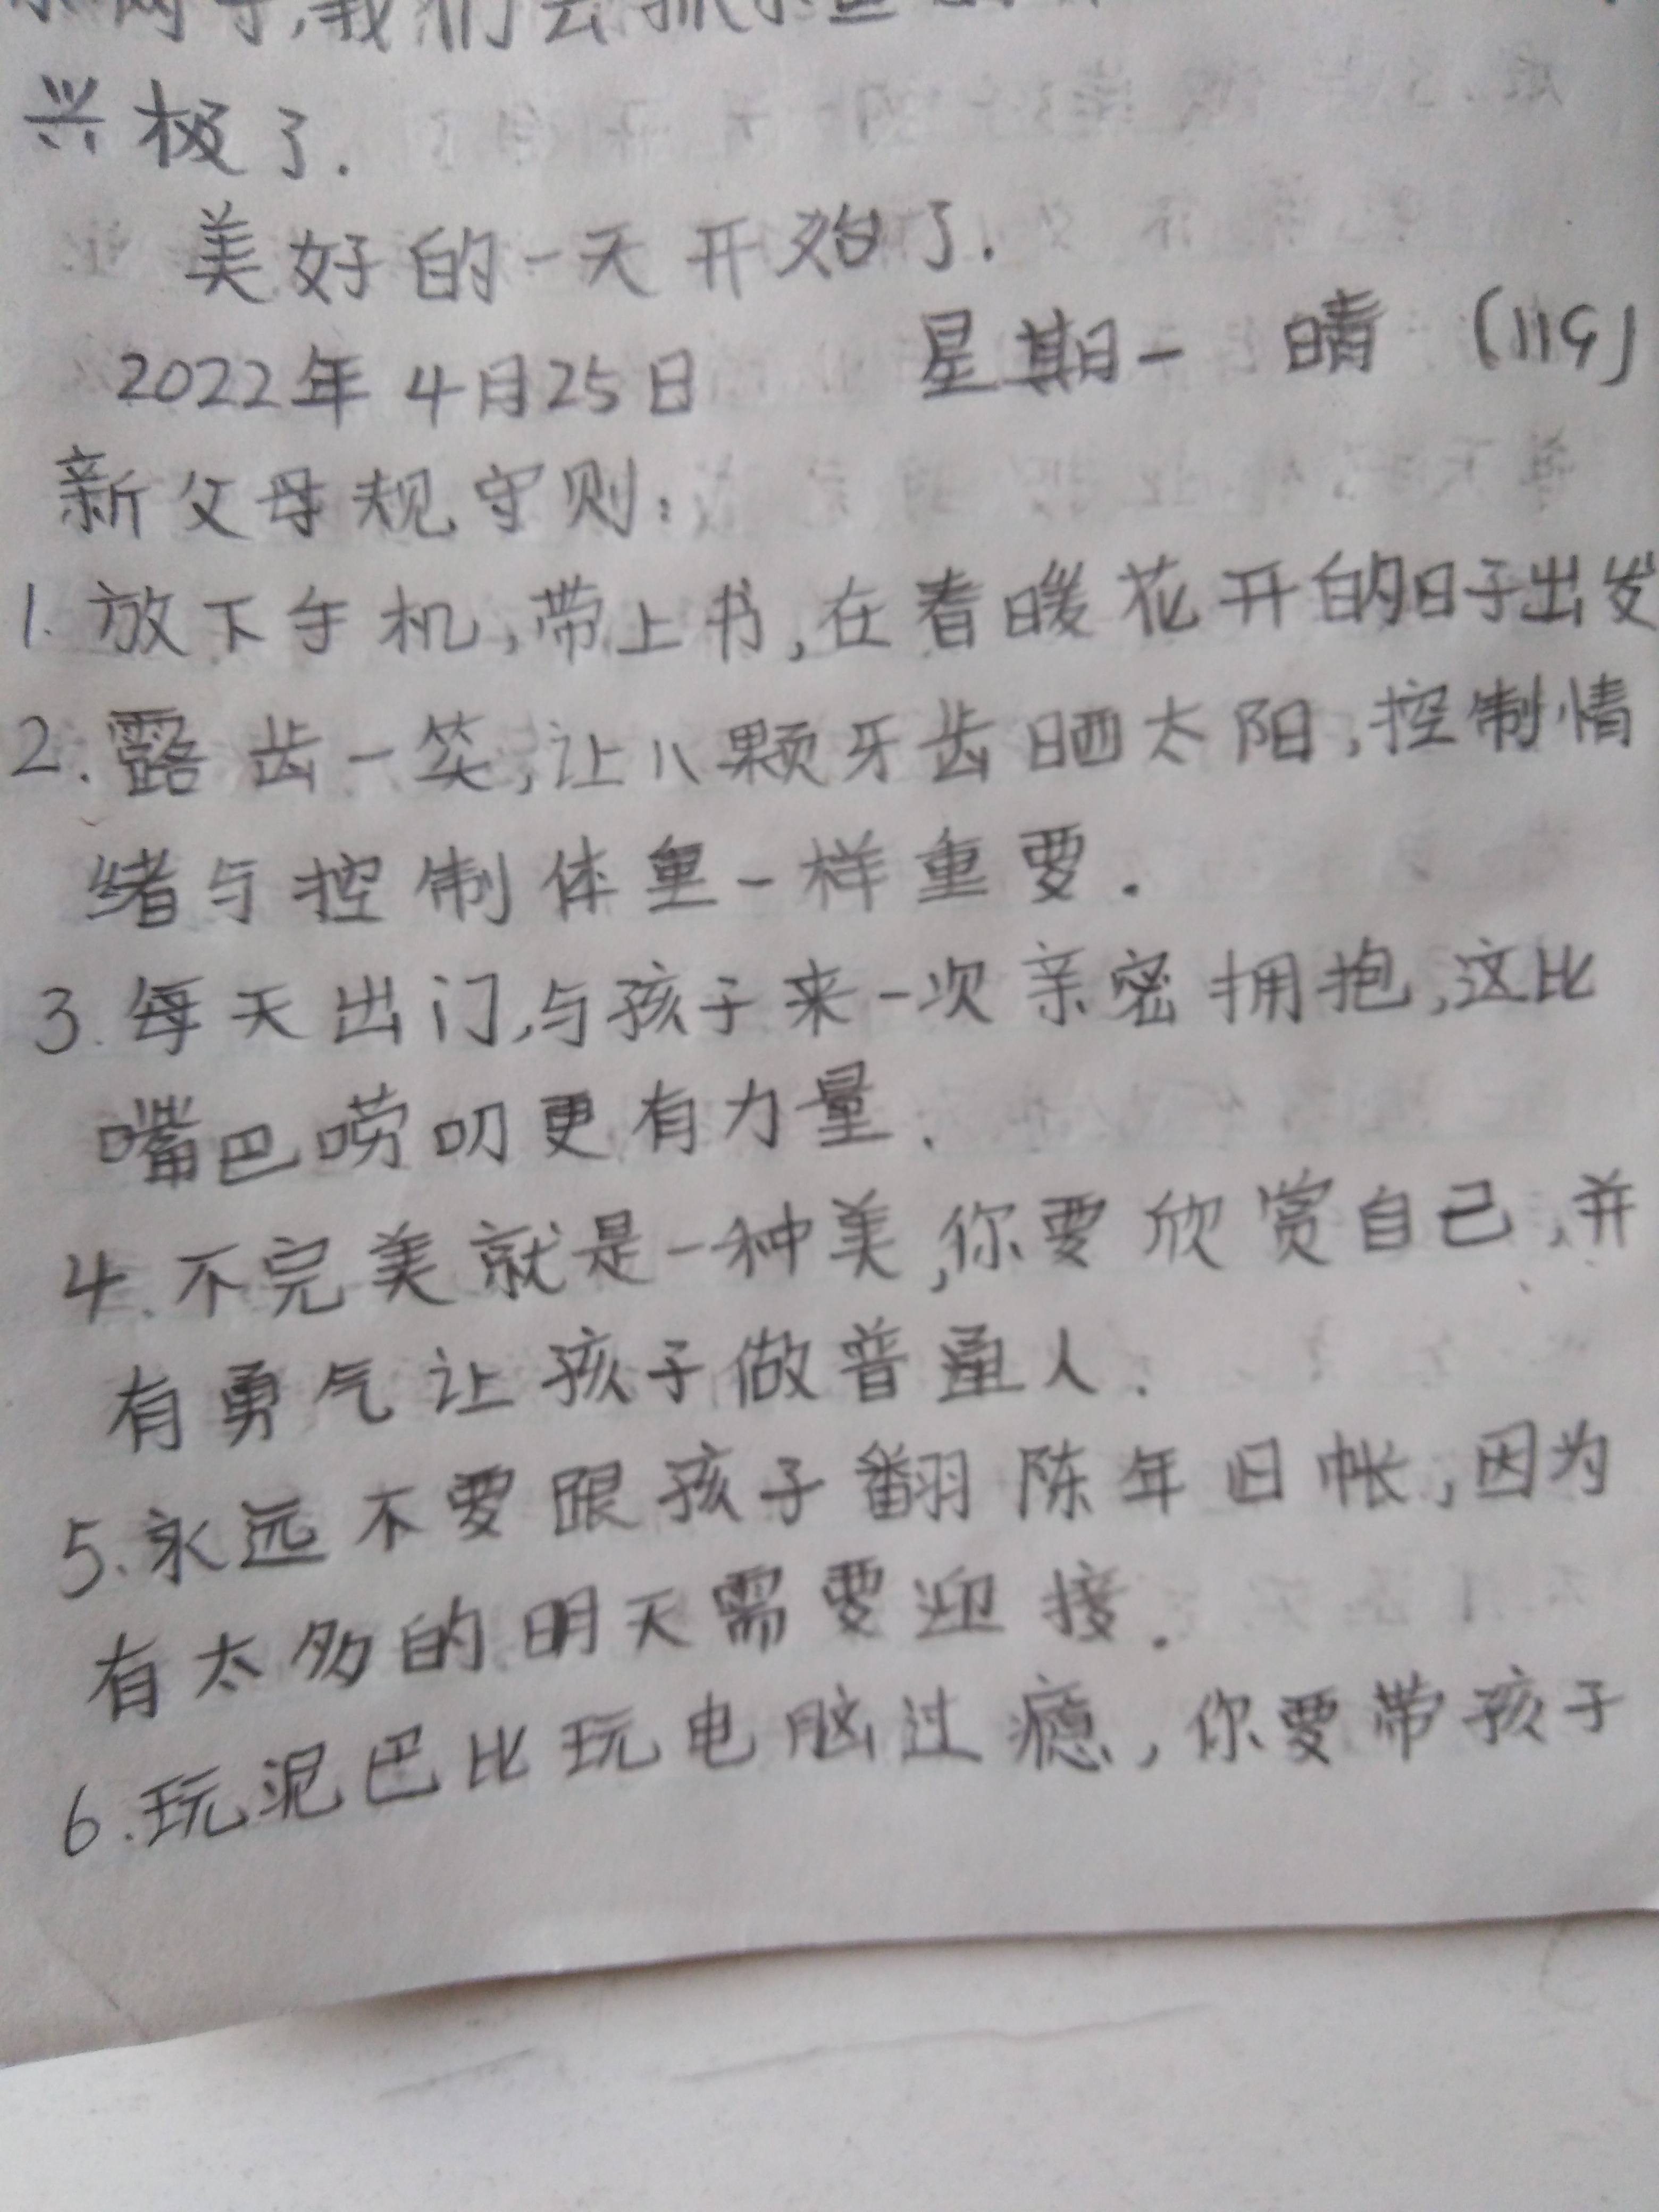 我们去抓
兴极了.
美好的一天开始了.
2022年4月25日 星期一 晴 (119)
新父母规守则:
1. 放下手机,带上书,在春暖花开的日子出发
2. 露齿一笑,让八颗牙齿晒太阳,控制情
绪与控制体重一样重要.
3. 每天出门,与孩子来一次亲密拥抱,这比
嘴巴唠叨更有力量.
4. 不完美就是一种美,你要欣赏自己,并
有勇气让孩子做普通人.
5. 永远不要跟孩子翻陈年旧帐,因为
有太多的明天需要迎接.
6. 玩泥巴比玩电脑过瘾,你要带孩子